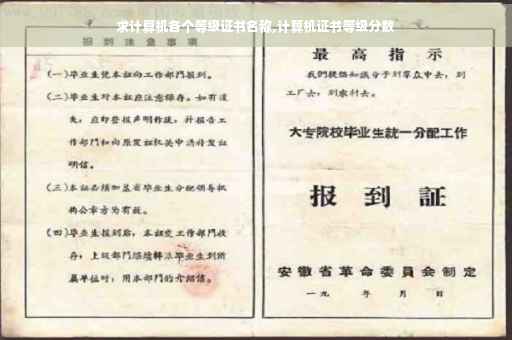 求计算机各个等级证书名称,计算机证书等级分数
报到注意事项
(一)毕业生凭本证向工作部門报到。
(二)毕业生对本証应注意保存。如有遗
失,应即登报声明作废,并报告工
作部門和向原发证机关申請补发証
明信。
(三)本証必須加盖省毕业生分配領导机
构公章方为有效。
(四)毕业生报到后,本証交工作部門收
存;上級部門
毕业生到所
属单位时,用本部門的介紹信。
最高指示
我們提倡知識分子到羣众中去,到
工厂去,到农村去。
大专院校毕业生統一分配工作
报到証
安徽省革命委員会制定
一九 年 月 日